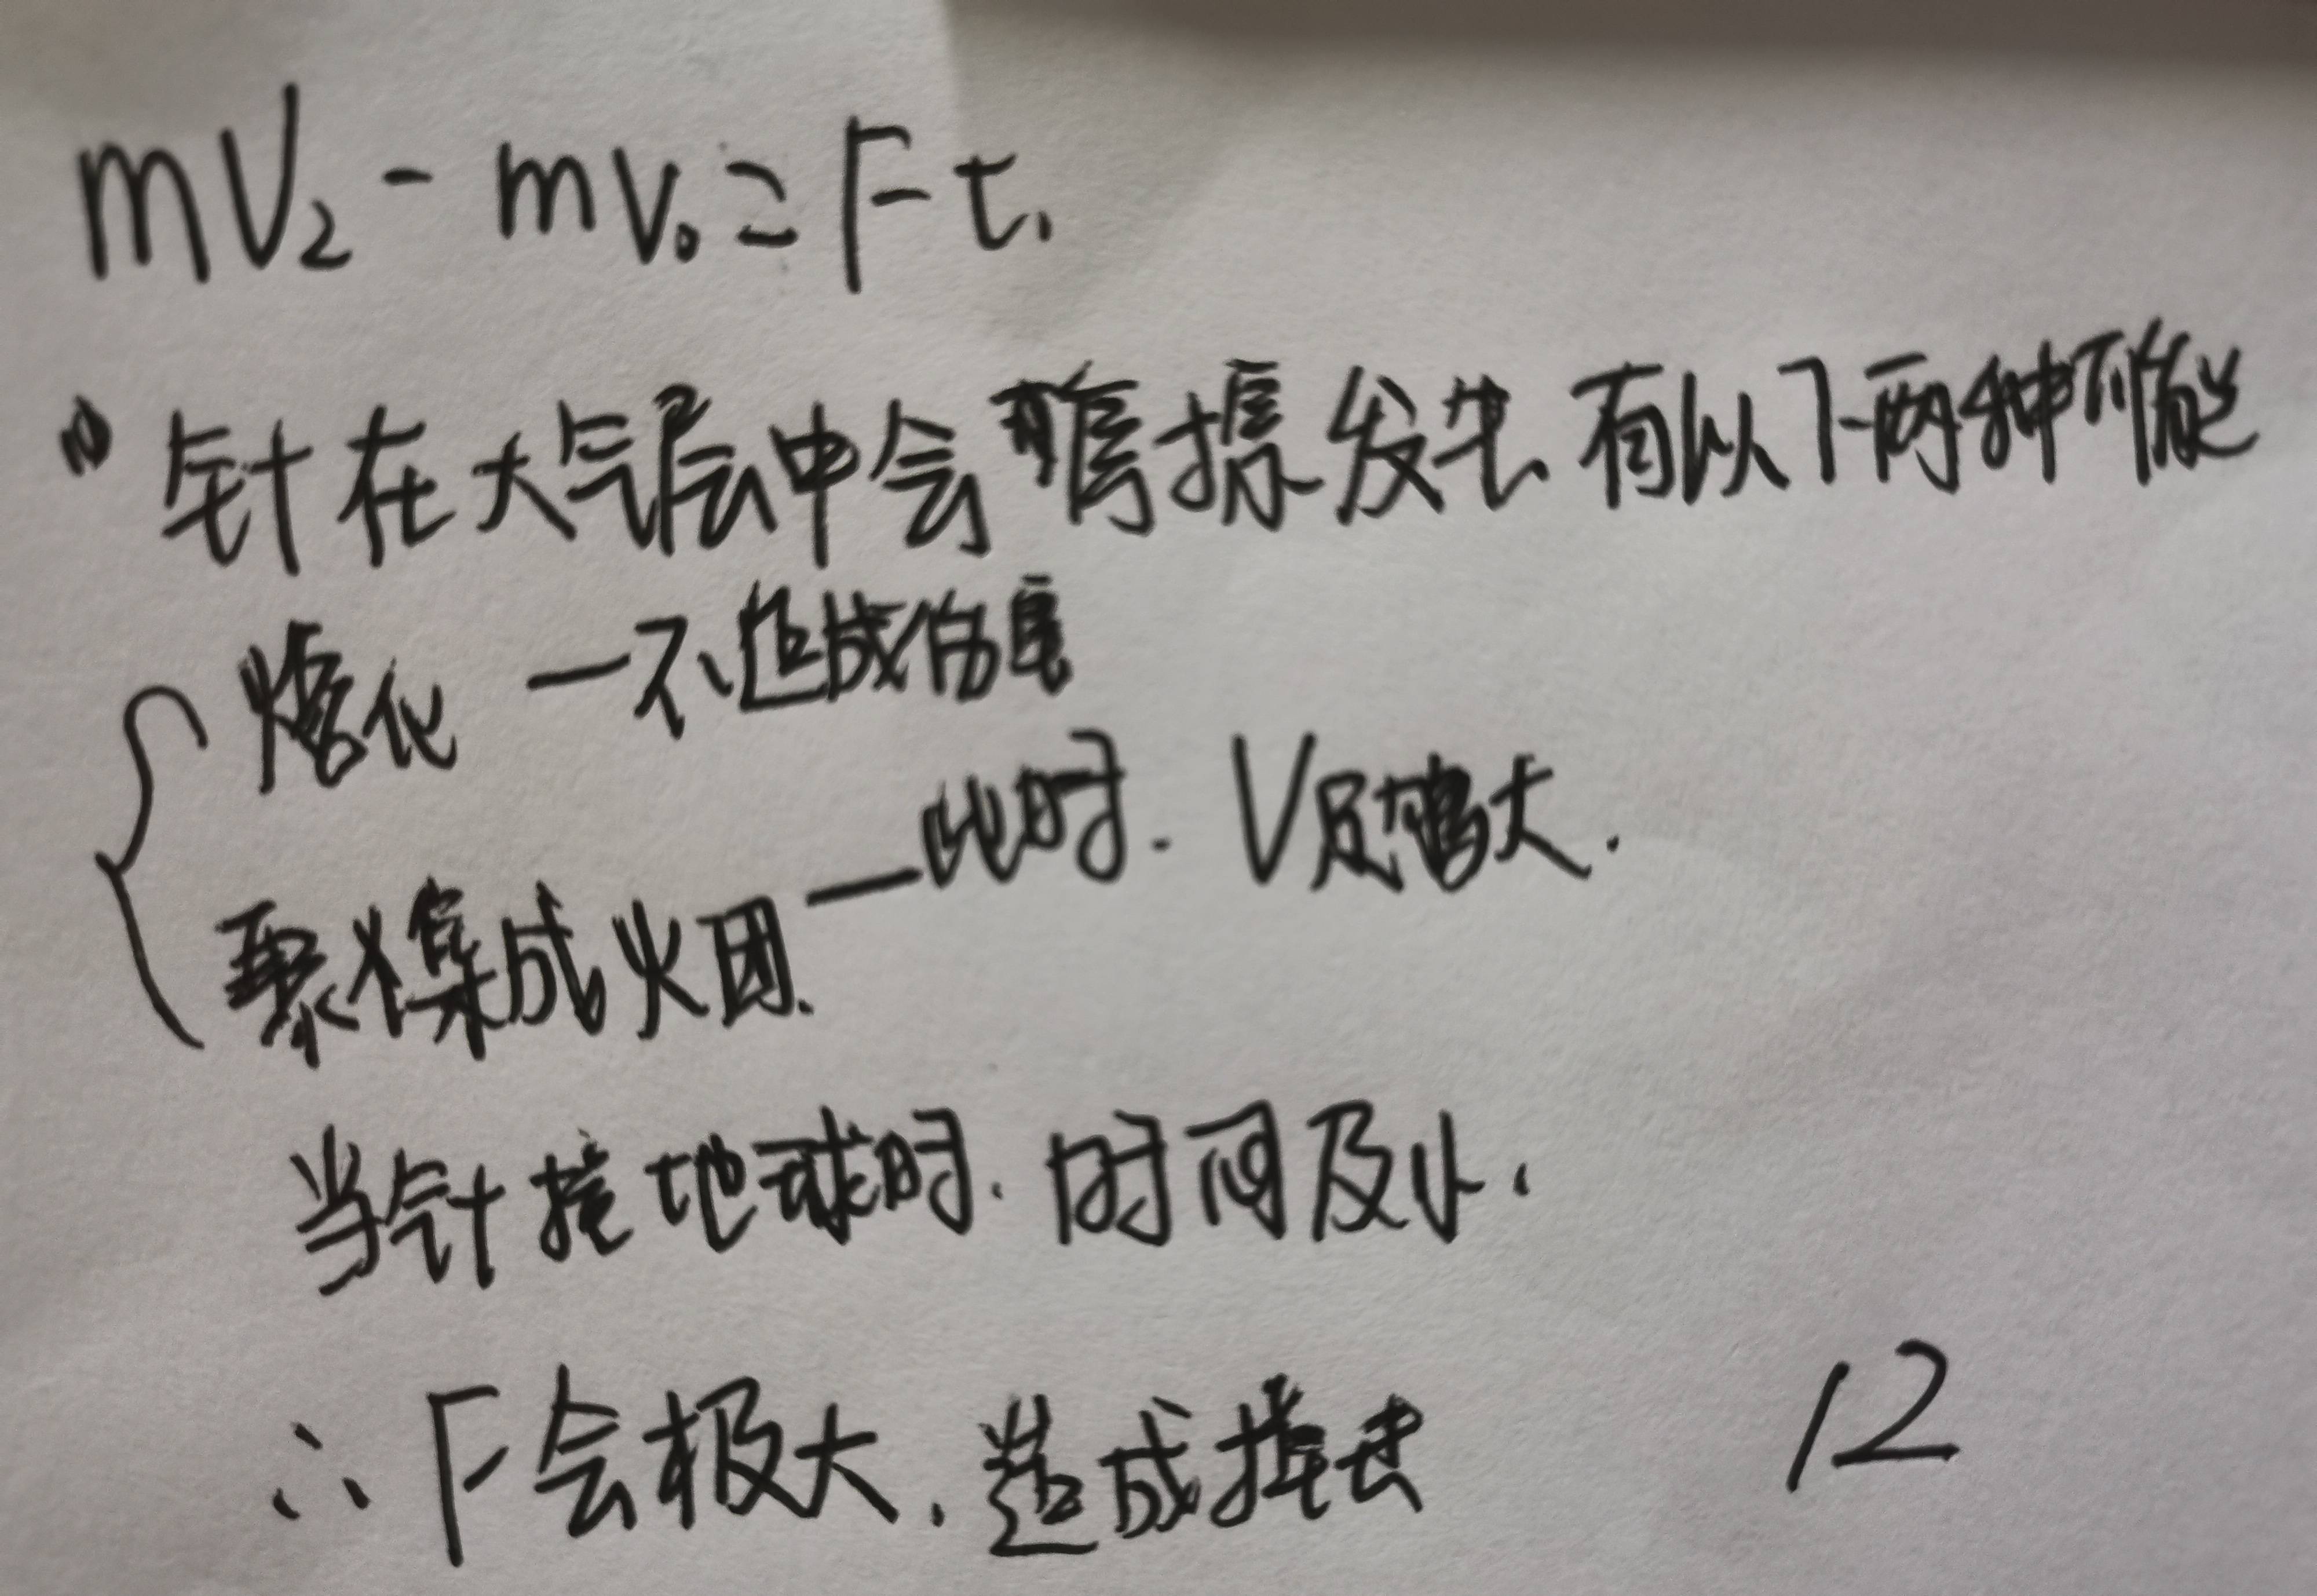 mV₂-mv₀=Ft.
针在大气层中会摩擦发生.有以下两种可能
熔化 — 不造成伤害
聚集成火团. — 此时. V足够大.
当针接地球时. 时间及小.
∴ F会极大.造成
12